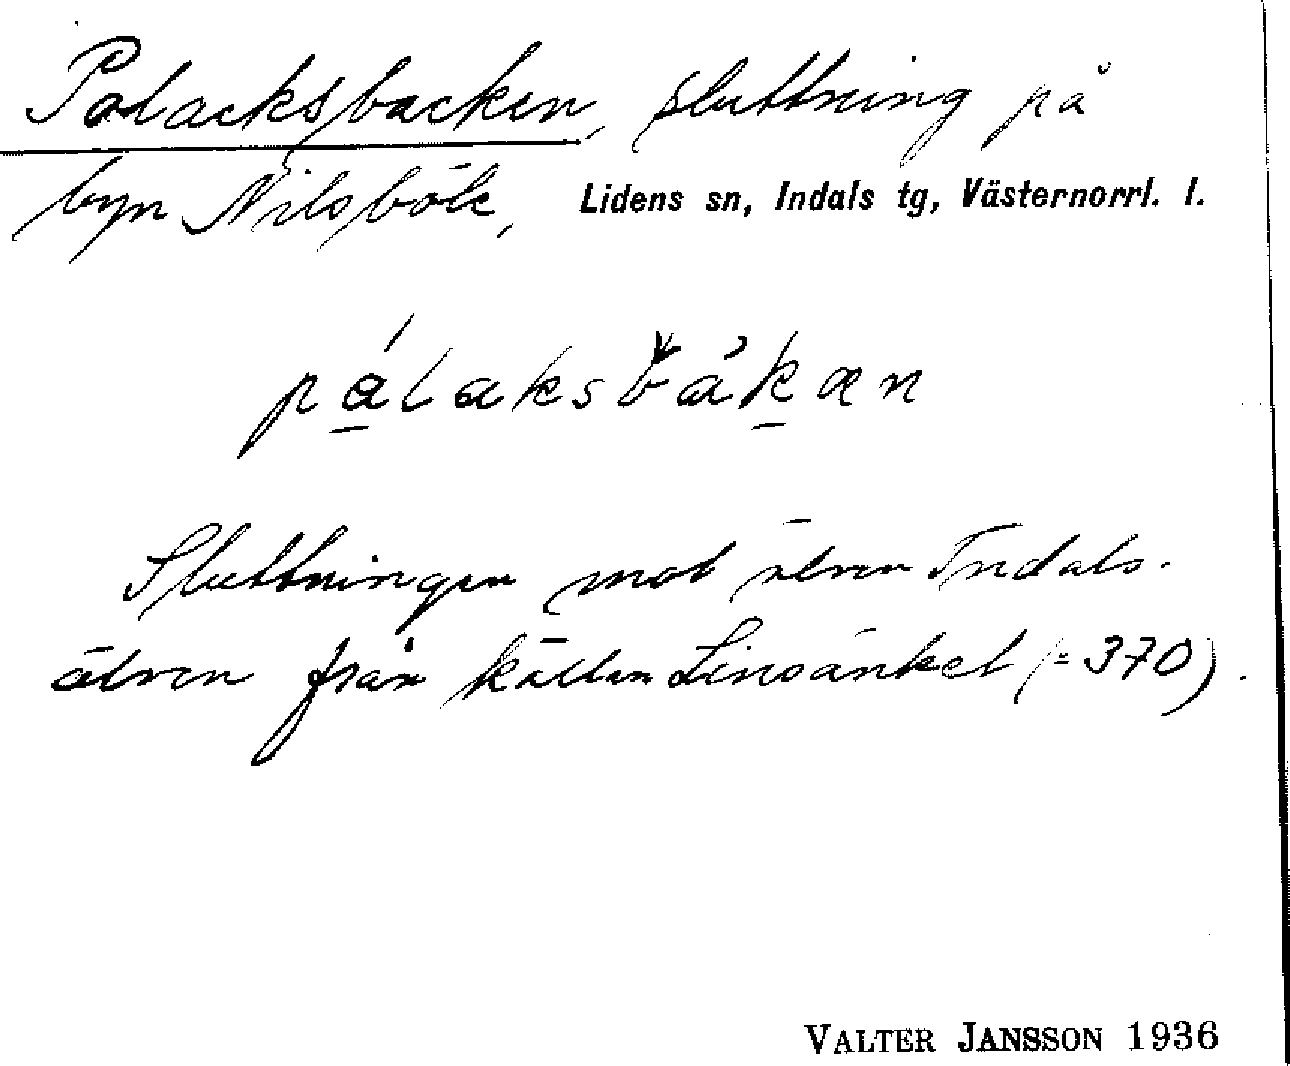 Polacksbacken, sluttning på
byn Nilsböle, Lidens sn, Indals tg, Västernorrl. l.
pálaksbákan
Sluttningen mot älven Indals-
älven från källan (=370).
VALTER JANSSON 1936